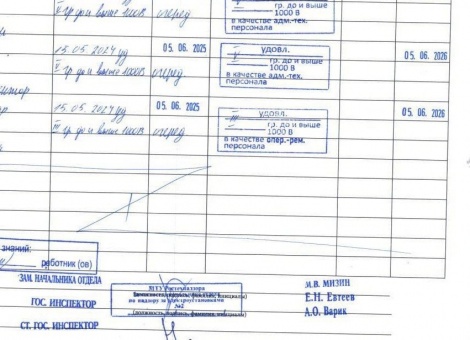 V гр до и выше 1000В очеред
гр. до и выше
1000 В
в качестве адм.-тех.
персонала
15.05.2024 уд
05. 06. 2025
удовл.
05. 06. 2026
V гр до и выше 1000В очеред.
V гр. до и выше
1000 В
в качестве адм.-тех.
персонала
15.05.2024 уд
05. 06. 2025
удовл.
05. 06. 2026
III гр. до и выше 1000В очеред
III гр. до и выше
1000 В
в качестве опер.-рем.
персонала
знаний:
работник (ов)
ЗАМ. НАЧАЛЬНИКА ОТДЕЛА
МТУ Ростехнадзора
М.В. МИЗИН
ГОС. ИНСПЕКТОР
по надзору за электроустановками
№1
Е.Н. Евтеев
СТ. ГОС. ИНСПЕКТОР
(должность, подпись, фамилия, инициалы)
А.О. Варик